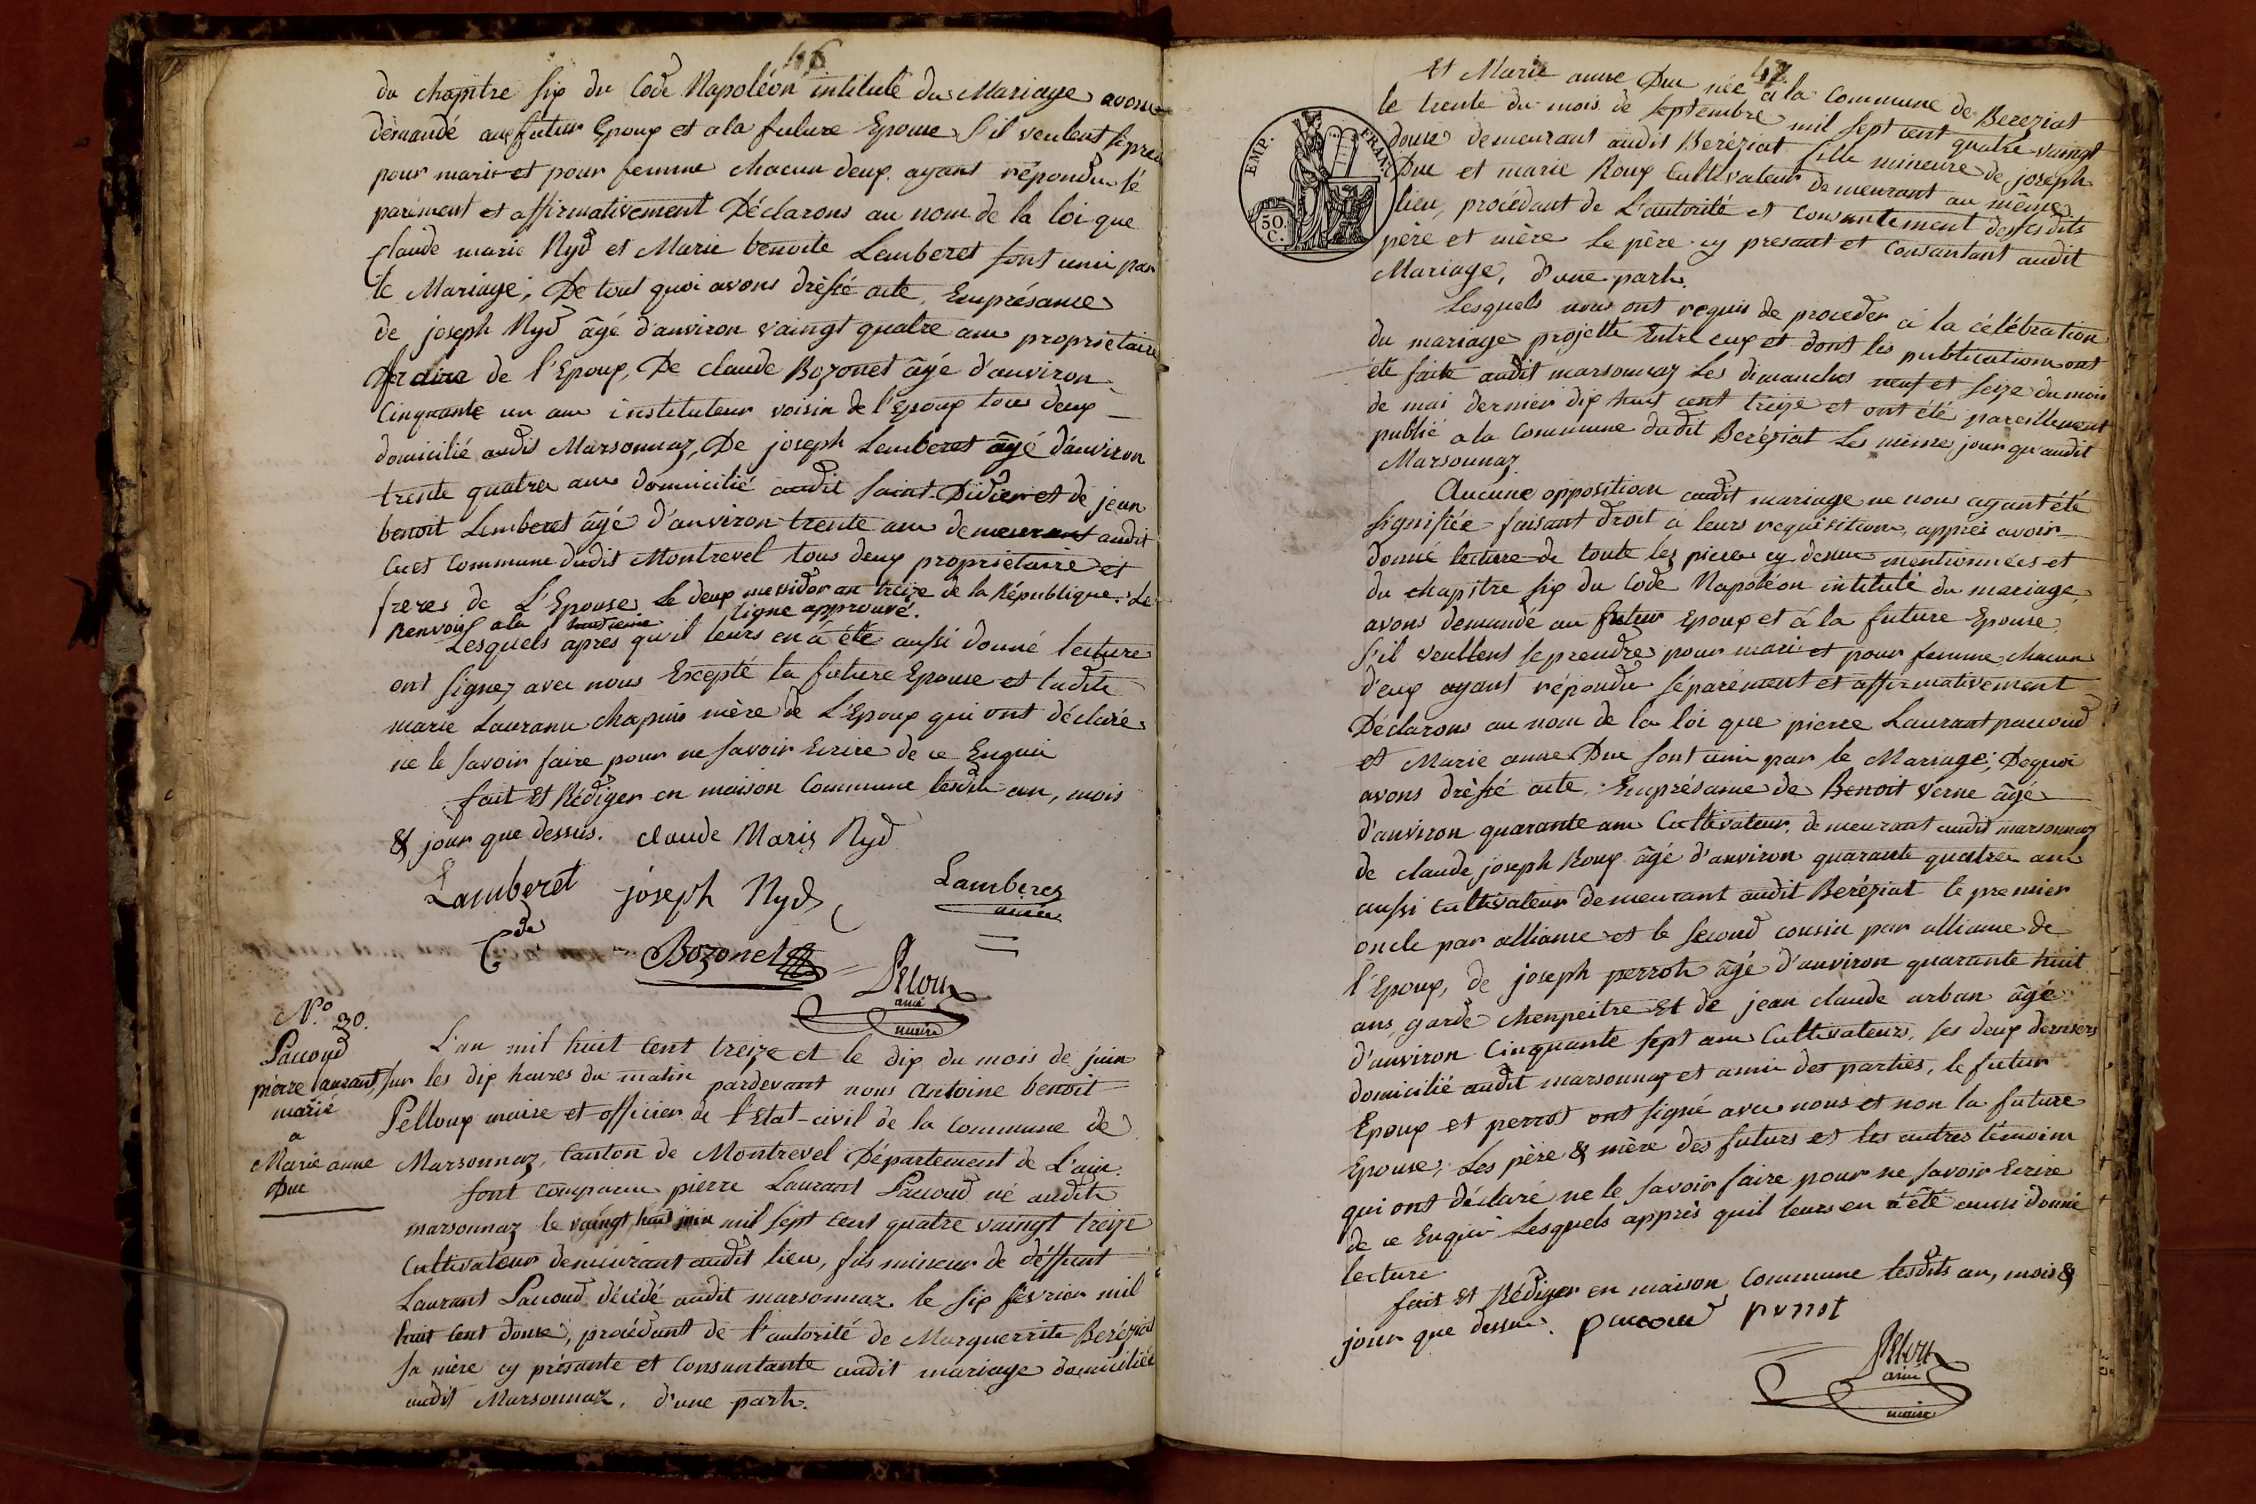 46
du chapitre six du Code Napoléon intitulé du Mariage avons
démandé au futur Epoux et a la future Epouse s'il veulent se prendre
pour mari et pour femme chacun deux ayant répondu sé
parément et affirmativement Déclarons au nom de la loi que
Claude marie Nyd et Marie benoite Lemberet sont unis par
le Mariage, De tout quoi avons dréssé acte, Enprésance
de joseph Nyd âgé d'anviron vaingt quatre ans propriétaire
frere de l'Epoux, De claude Bozonet âgé d'anviron
Cinquante un ans instituteur voisin de l'Epoux tous deux
domicilié audit Marsonnaz, De joseph Lemberet âgé d'anviron
trente quatre ans domicilié audit saint Didier et de jean
benoit Lemberet âgé d'anviron trente ans demeurant audit
Cuet Commune dudit Montrevel tous deux propriétaire et
freres de L'Epouse, le deux messidor an treize de la République. Le
Renvois a la ligne approuvé.
Lesquels après qu'il leurs en à été aussi donné lecture
ont signez avec nous Excepté la future Epouse et ladite
marie Lauranne chapuis mère de L'Epoux qui ont déclaré
ne le savoir faire pour ne savoir Ecrire de ce Enquis
fait et Rédiger en maison Commune lesdits an, mois
& jour que dessus. claude Marie Nyd
Lamberet joseph Nyd Lamberet
ainée
Cde Bozonet
Pelou
ainé
maire
N.o 30.
Pacoud
pierre Laurant
marié
a
Marie anne
Duc
L'an mil huit Cent treize et le dix du mois de juin
sur les dix heures du matin pardevant nous Antoine benoit
Pelloux maire et officier de l'Etat-civil de la Commune de
Marsonnaz, Canton de Montrevel Département de L'ain.
sont comparu pierre Laurant Pacoud né audit
marsonnaz le vaingt huit juin mil sept cent quatre vaingt treize
Cultivateur demeurant audit lieu, fils mineur de déffunt
Laurant Pacoud décédé audit marsonnaz le six février mil
huit Cent douze, procédant de l'autorité de Marguerritte Beréziat
sa mère cy présante et Consantante audit mariage domiciliée
audit Marsonnaz, d'une part.
47
Et Marie anne Duc née à la Commune de Bereziat
le trente du mois de septembre mil sept cent quatre vaingt
douze demeurant audit Beréziat fille mineure de joseph
Duc et marie Roux Cultivateur demeurant au même
lieu, procédant de L'autorité et Consentement desdits
père et mère le père cy présant et Consantant audit
Mariage, d'une part.
EMP. FRAN.
50.
C.
Lesquels nous ont requis de proceder à la célébration
du mariage projetté Entre eux et dont les publications ont
été faite audit marsonnaz les dimanches neuf et seize du mois
de mai dernier dix huit cent treize et ont été pareillement
publié a la Commune dudit Beréziat les même jour qu'audit
Marsonnaz.
Aucune opposition audit mariage ne nous ayant été
signifiée faisant droit à leurs requisition, appréi avoir
donné lecture de toute les pieces cy dessus mentionnées et
du chapitre six du Code Napoléon intitulé du mariage
avons demandé au futur Epoux et à la future Epouse
s'il veullent se prendre pour mari et pour femme chacun
d'eux ayant répondu séparément et affirmativement
Déclarons au nom de la loi que pierre Laurant pacoud
et Marie anne Duc sont unis par le Mariage; De quoi
avons dréssé acte, Enprésance de Benoit Verne âgé
d'anviron quarante ans Cultivateur, demeurant audit marsonnaz
de claude joseph Roux âgé d'anviron quarante quatre ans
aussi cultivateur demeurant audit Beréziat le premier
oncle par alliance et le second cousin par alliance de
l'Epoux, de joseph perrot âgé d'anviron quarante huit
ans garde chenpeitre Et de jean claude arban âgé
d'anviron Cinquante sept ans Cultivateurs, les deux derniers
domicilié audit marsonnaz et amis des parties, le futur
Epoux et perrot ont signé avec nous et non la future
Epouse, Les père & mère des futurs et les autres témoins
qui ont déclaré ne le savoir faire pour ne savoir Ecrire
de ce Enquis Lesquels apprès quil leurs en à été aussi donné
lecture
fait Et Rédiger en maison Commune lesdits an, mois &
jour que dessus. pacoud perrot
Pelou
ainé
maire